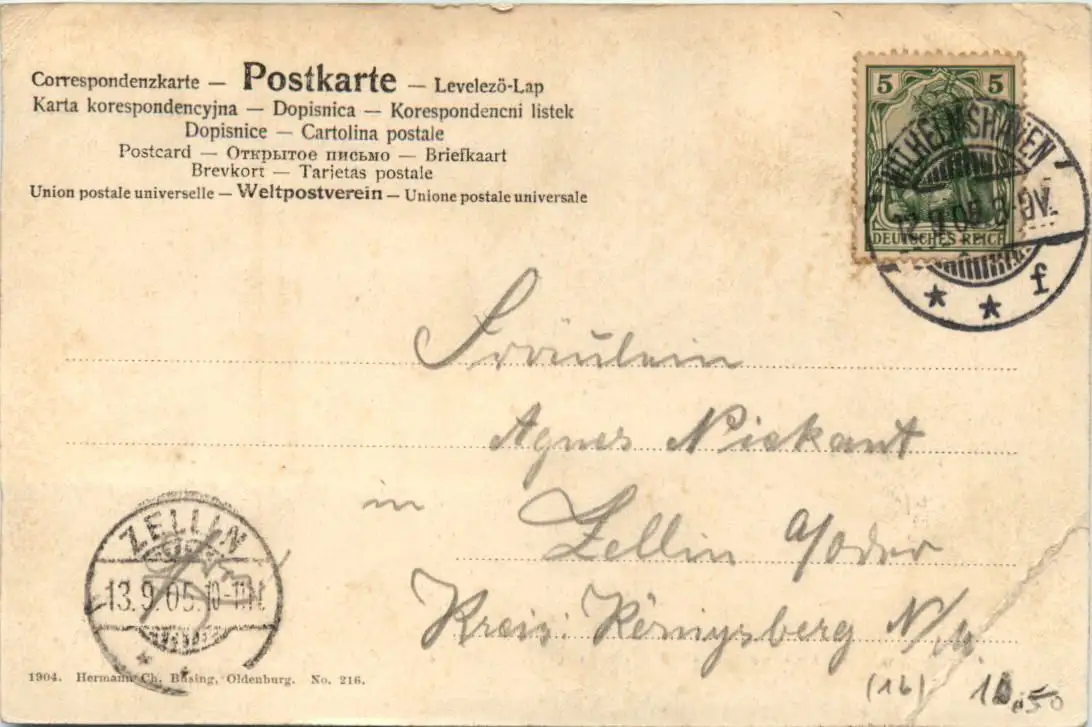 Correspondenzkarte — Postkarte — Levelező-Lap
Karta korespondencyjna — Dopisnica — Korespondencni listek
Dopisnice — Cartolina postale
Postcard — Открытое письмо — Briefkaart
Brevkort — Tarjetas postale
Union postale universelle — Weltpostverein — Unione postale universale
5 5
DEUTSCHES REICH
WILHELMSHAVEN
12.9.05. 8-9V.
* * f
Fräulein
Agnes Niekant
in Zellin a/oder
Kreis: Königsberg N/M.
ZELLIN
13.9.05. 10-11N.
* *
1904. Hermann Ch. Büsing, Oldenburg. No. 216.
(16)